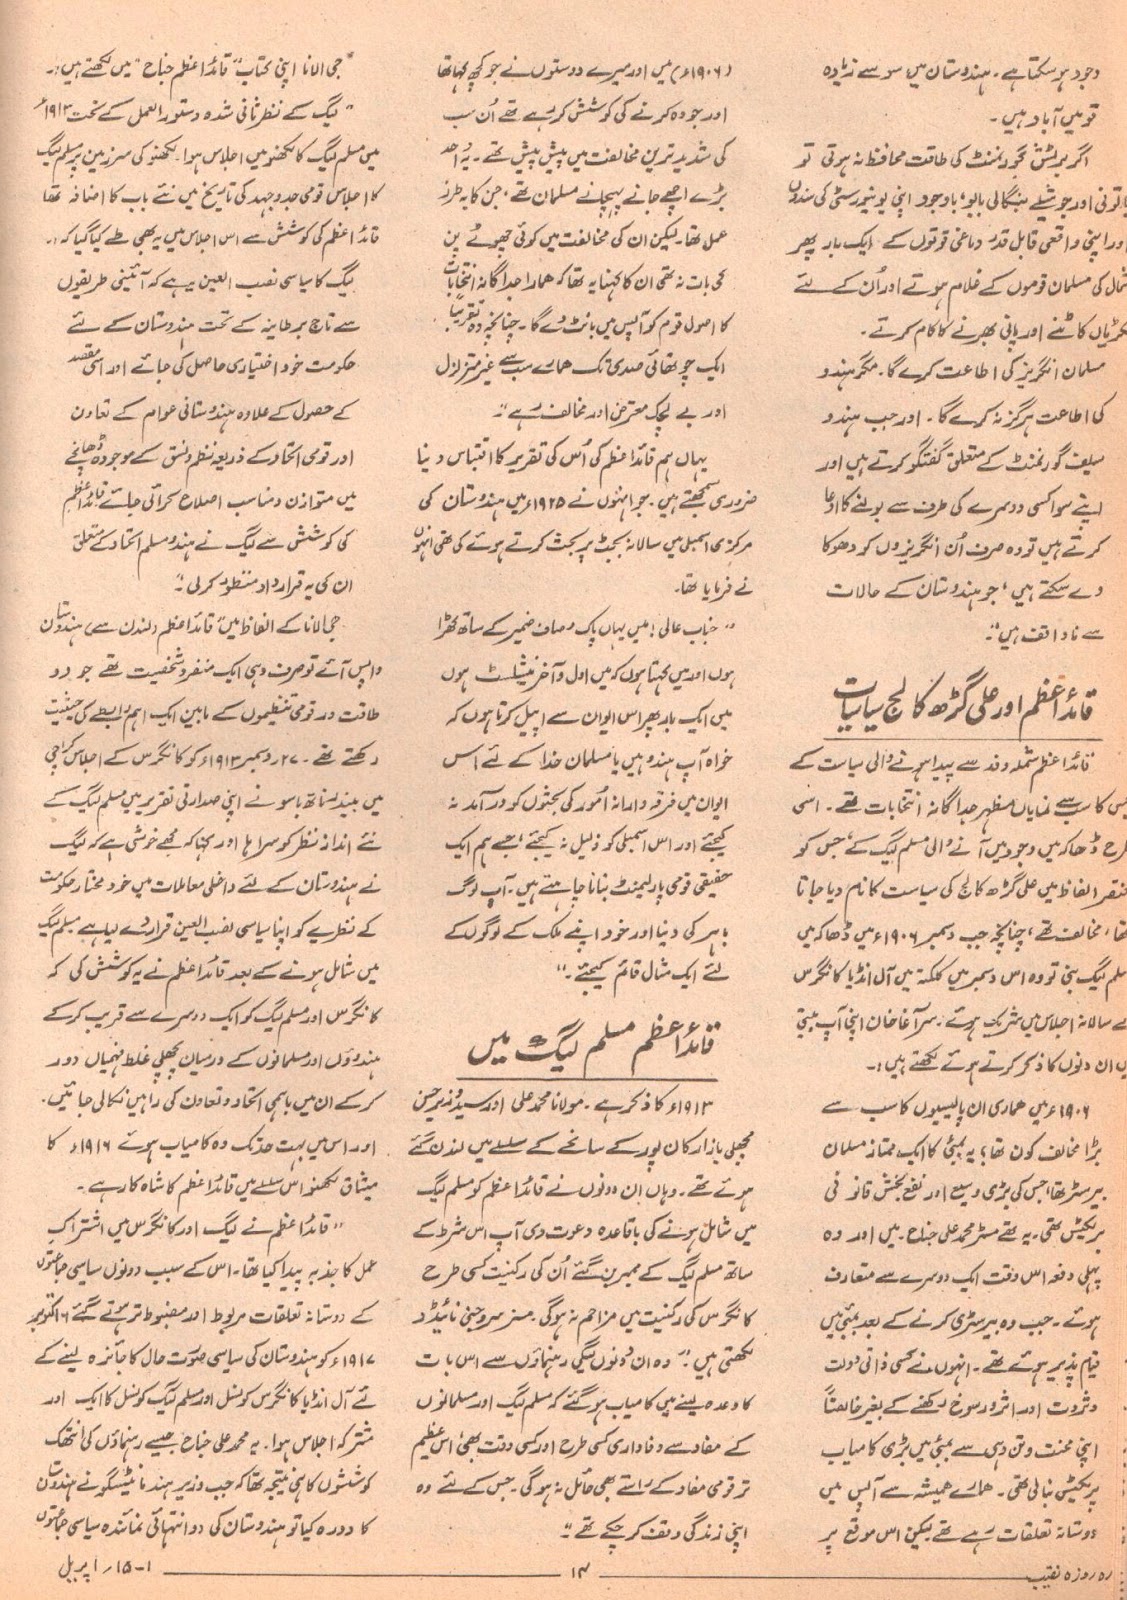 وجود ہو سکتا ہے۔ ہندوستان میں سو سے زیادہ
قومیں آباد ہیں۔
اگر برٹش گورنمنٹ کی طاقت محافظ نہ ہوتی تو
باتونی اور جوشیلے بنگالی بابو، باوجود اپنی یونیورسٹی کی سندوں
اور اپنی واقعی قابل قدر دماغی قوتوں کے ایک بار پھر
شمال کی مسلمان قوموں کے غلام ہوتے اور اُن کے لئے
لکڑیاں کاٹنے اور پانی بھرنے کا کام کرتے۔
مسلمان انگریز کی اطاعت کرے گا۔ مگر ہندو
کی اطاعت ہرگز نہ کرے گا۔ اور جب ہندو
سیلف گورنمنٹ کے متعلق گفتگو کرتے ہیں اور
اپنے سوا کسی دوسرے کی طرف سے بولنے کا ادعا
کرتے ہیں تو وہ صرف اُن انگریزوں کو دھوکا
دے سکتے ہیں، جو ہندوستان کے حالات
سے ناواقف ہیں"۔
قائداعظم اور علی گڑھ کالج سیاسیات
قائداعظم شملہ وفد سے پیدا ہونے والی سیاست کے
جس کا سب سے نمایاں مظہر جداگانہ انتخابات تھے۔ اسی
طرح ڈھاکہ میں وجود میں آنے والی مسلم لیگ کے، جس کو
مختصر الفاظ میں علی گڑھ کالج کی سیاست کا نام دیا جاتا
تھا، مخالف تھے، چنانچہ جب دسمبر ۱۹۰۶ء میں ڈھاکہ میں
مسلم لیگ بنی تو وہ اس دسمبر میں کلکتہ میں آل انڈیا کانگرس
کے سالانہ اجلاس میں شریک ہوئے۔ سر آغا خان اپنی آپ بیتی
میں ان دنوں کا ذکر کرتے ہوئے لکھتے ہیں:۔
۱۹۰۶ء میں ہماری ان پالیسیوں کا سب سے
بڑا مخالف کون تھا؛ یہ بمبئی کا ایک ممتاز مسلمان
بیرسٹر تھا، جس کی بڑی وسیع اور نفع بخش قانونی
پریکٹس تھی۔ یہ تھے مسٹر محمد علی جناح۔ میں اور وہ
پہلی دفعہ اس وقت ایک دوسرے سے متعارف
ہوئے۔ جب وہ بیرسٹری کرنے کے بعد بمبئی میں
قیام پذیر ہوئے تھے۔ انہوں نے کسی ذاتی دولت
و ثروت اور اثر و رسوخ رکھنے کے بغیر خالصتاً
اپنی محنت و تن دہی سے بمبئی میں بڑی کامیاب
پریکٹس بنا لی تھی۔ ہمارے ہمیشہ سے آپس میں
دوستانہ تعلقات رہے تھے لیکن اس موقع پر
(۱۹۰۶ء) میں اور میرے دوستوں نے جو کچھ کہا تھا
اور جو وہ کرنے کی کوشش کر رہے تھے اُن سب
کی شدید ترین مخالفت میں پیش پیش تھے۔ یہ واحد
بڑے اچھے جانے پہچانے مسلمان تھے، جن کا یہ طرز
عمل تھا۔ لیکن ان کی مخالفت میں کوئی چھوٹے پن
کی بات نہ تھی ان کا کہنا یہ تھا کہ ہمارا جداگانہ انتخابات
کا اصول قوم کو آپس میں بانٹ دے گا۔ چنانچہ وہ تقریباً
ایک چوتھائی صدی تک ہمارے سب سے غیر متزلزل
اور بے لچک معترض اور مخالف رہے"۔
یہاں ہم قائداعظم کی اُس کی تقریر کا اقتباس دینا
ضروری سمجھتے ہیں۔ جو انہوں نے ۱۹۲۵ء میں ہندوستان کی
مرکزی اسمبلی میں سالانہ بجٹ پر بحث کرتے ہوئے کی تھی انہوں
نے فرمایا تھا۔
"جناب عالی! میں یہاں پاک و صاف ضمیر کے ساتھ کھڑا
ہوں اور میں کہتا ہوں کہ میں اول و آخر نیشلسٹ ہوں
میں ایک بار پھر اس ایوان سے اپیل کرتا ہوں کہ
خواہ آپ ہندو ہیں یا مسلمان خدا کے لئے اس
ایوان میں فرقہ وارانہ امُور کی بحثوں کو در آمد نہ
کیجئے اور اس اسمبلی کو ذلیل نہ کیجئے، جسے ہم ایک
حقیقی قومی پارلیمنٹ بنانا چاہتے ہیں۔ آپ لوگ
باہر کی دنیا اور خود اپنے ملک کے لوگوں کے
لئے ایک مثال قائم کیجئے۔"
قائداعظم مسلم لیگ میں
۱۹۱۳ء کا ذکر ہے۔ مولانا محمد علی اور سید وزیر حسن
مچھلی بازار کان پور کے سانحے کے سلسلے میں لندن گئے
ہوئے تھے۔ وہاں ان دونوں نے قائداعظم کو مسلم لیگ
میں شامل ہونے کی باقاعدہ دعوت دی آپ اس شرط کے
ساتھ مسلم لیگ کے ممبر بن گئے اُن کی رکنیت کسی طرح
کانگرس کی رکنیت میں مزاحم نہ ہوگی۔ مسز سروجنی نائیڈو
لکھتی ہیں:۔ "وہ ان دونوں لیگی رہنماؤں سے اس بات
کا وعدہ لینے میں کامیاب ہو گئے کہ مسلم لیگ اور مسلمانوں
کے مفاد سے وفاداری کسی طرح اور کسی وقت بھی اس عظیم
تر قومی مفاد کے راستے بھی حائل نہ ہوگی۔ جس کے لئے وہ
اپنی زندگی وقف کر چکے تھے"۔
جی الانا اپنی کتاب "قائداعظم جناح" میں لکھتے ہیں:۔
"لیگ کے نظرثانی شدہ دستورالعمل کے تحت ۱۹۱۳ء
میں مسلم لیگ کا لکھنو میں اجلاس ہوا۔ لکھنو کی سرزمین پر مسلم لیگ
کا اجلاس قومی جدوجہد کی تاریخ میں نئے باب کا اضافہ تھا
قائداعظم کی کوشش سے اس اجلاس میں یہ بھی طے کیا گیا کہ:۔
لیگ کا سیاسی نصب العین یہ ہے کہ آئینی طریقوں
سے تاج برطانیہ کے تحت ہندوستان کے لئے
حکومت خود اختیاری حاصل کی جائے اور اسی مقصد
کے حصول کے علاوہ ہندوستانی عوام کے تعاون
اور قومی اتحاد کے ذریعہ نظم و نسق کے موجودہ ڈھانچے
میں متوازن و مناسب اصلاح کرائی جائے قائداعظم
کی کوشش سے لیگ نے ہندو مسلم اتحاد کے متعلق
ان کی یہ قرارداد منظور کر لی"۔
جی الانا کے الفاظ میں، قائداعظم (لندن سے) ہندوستان
واپس آئے تو صرف وہی ایک منفرد شخصیت تھے جو دو
طاقت ور قومی تنظیموں کے مابین ایک اہم رابطے کی حیثیت
رکھتے تھے۔ ۲۷ دسمبر ۱۹۱۳ء کو کانگرس کے اجلاس کراچی
میں بپندر ناتھ باسو نے اپنی صدارتی تقریر میں مسلم لیگ کے
نئے انداز نظر کو سراہا اور کہا کہ مجھے خوشی ہے کہ لیگ
نے ہندوستان کے لئے داخلی معاملات میں خود مختار حکومت
کے نظریے کو اپنا سیاسی نصب العین قرار دے لیا ہے مسلم لیگ
میں شامل ہونے کے بعد قائداعظم نے یہ کوشش کی کہ
کانگرس اور مسلم لیگ کو ایک دوسرے سے قریب کر کے
ہندوؤں اور مسلمانوں کے درمیان پچھلی غلط فہمیاں دور
کر کے ان میں باہمی اتحاد و تعاون کی راہیں نکالی جائیں۔
اور اس میں بہت حد تک وہ کامیاب ہوئے ۱۹۱۶ء کا
میثاق لکھنو اس سلسلے میں قائداعظم کا شاہکار ہے۔
"قائداعظم نے لیگ اور کانگرس میں اشتراک
عمل کا جذبہ پیدا کیا تھا۔ اس کے سبب دونوں سیاسی جماعتوں
کے دوستانہ تعلقات مربوط اور مضبوط تر ہوتے گئے ۱۶ اکتوبر
۱۹۱۷ء کو ہندوستان کی سیاسی صورت حال کا جائزہ لینے کے
لئے آل انڈیا کانگرس کونسل اور مسلم لیگ کونسل کا ایک اور
مشترکہ اجلاس ہوا۔ یہ محمد علی جناح جیسے رہنماؤں کی انتھک
کوششوں کا ہی نتیجہ تھا کہ جب وزیر ہند مانٹیگو نے ہندوستان
کا دورہ کیا تو ہندوستان کی دو انتہائی نمائندہ سیاسی جماعتوں
روزہ نقیب
۱۴
۱-۱۵/اپریل